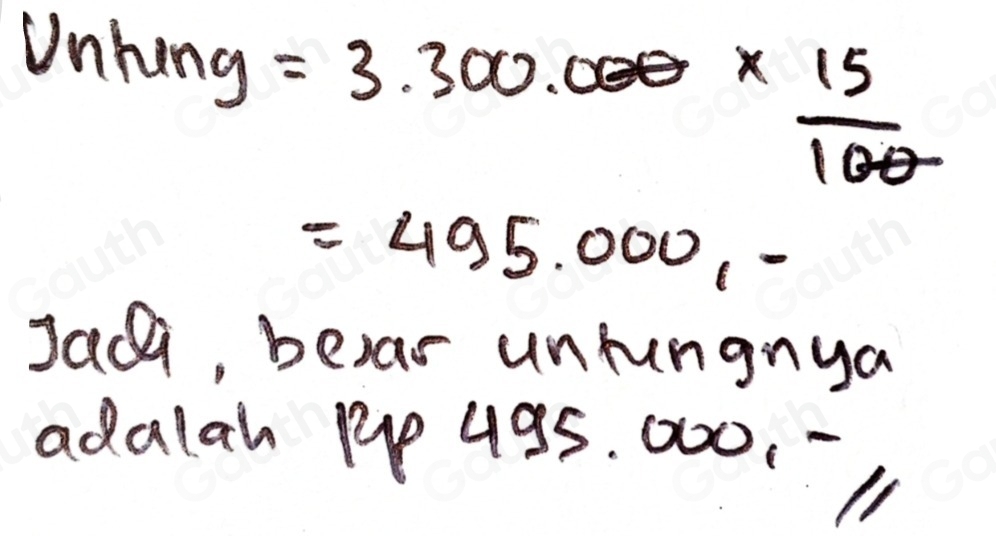 Untung = 3.300.000 × 15/100
= 495.000,-
Jadi, besar untungnya
adalah Rp 495.000,-